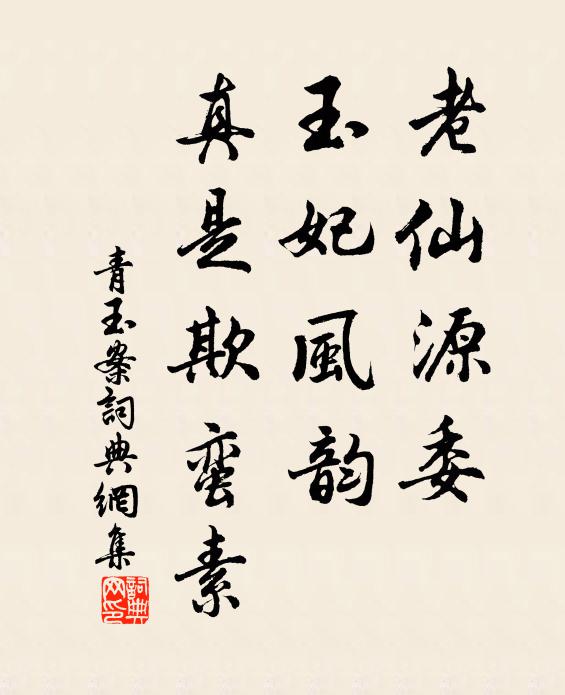 老仙源委
玉妃風韵
真是欺蛮素
青玉案詞典網集
詞典网印